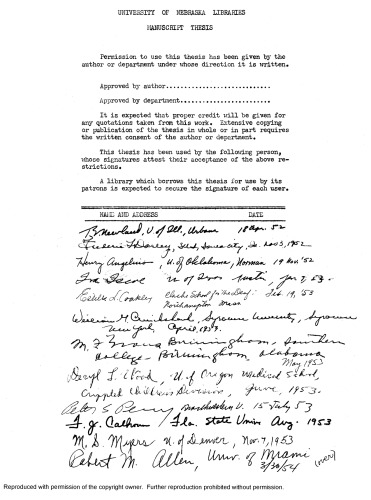 UNIVERSITY OF NEBRASKA LIBRARIES
MANUSCRIPT THESIS
Permission to use this thesis has been given by the
author or department under whose direction it is written.
Approved by author............................
Approved by department.........................
It is expected that proper credit will be given for
any quotations taken from this work. Extensive copying
or publication of the thesis in whole or in part requires
the written consent of the author or department.
This thesis has been used by the following person,
whose signatures attest their acceptance of the above re-
strictions.
A library which borrows this thesis for use by its
patrons is expected to secure the signature of each user.
NAME AND ADDRESS DATE
Newland, U of Ill, Urbana 18 Apr. 52
Iowa City, Ia. Nov 3, 1952
Henry Angelino, U. of Oklahoma, Norman 19 Nov '52
Ira Iscoe U of Texas Austin, Jan 7, 53.
Estelle L. Coakley Clarke School for the Deaf Feb. 19, '53
Northampton Mass
William M. Cruickshank, Syracuse University, Syracuse
New York April, 1953.
M. F. Birmingham, Southern
College - Birmingham, Alabama
May 1953
Deryl T. Wood, U. of Oregon Medical School,
Crippled Children Division, June, 1953.
Peter S. U. 15 July 53
F. J. Calhoun / Fla. State Univ. Aug. 1953
M. S. Myers U. of Denver, Nov. 7, 1953
Robert M. Allen, Univ. of Miami
3/30/54 (over)
Reproduced with permission of the copyright owner. Further reproduction prohibited without permission.